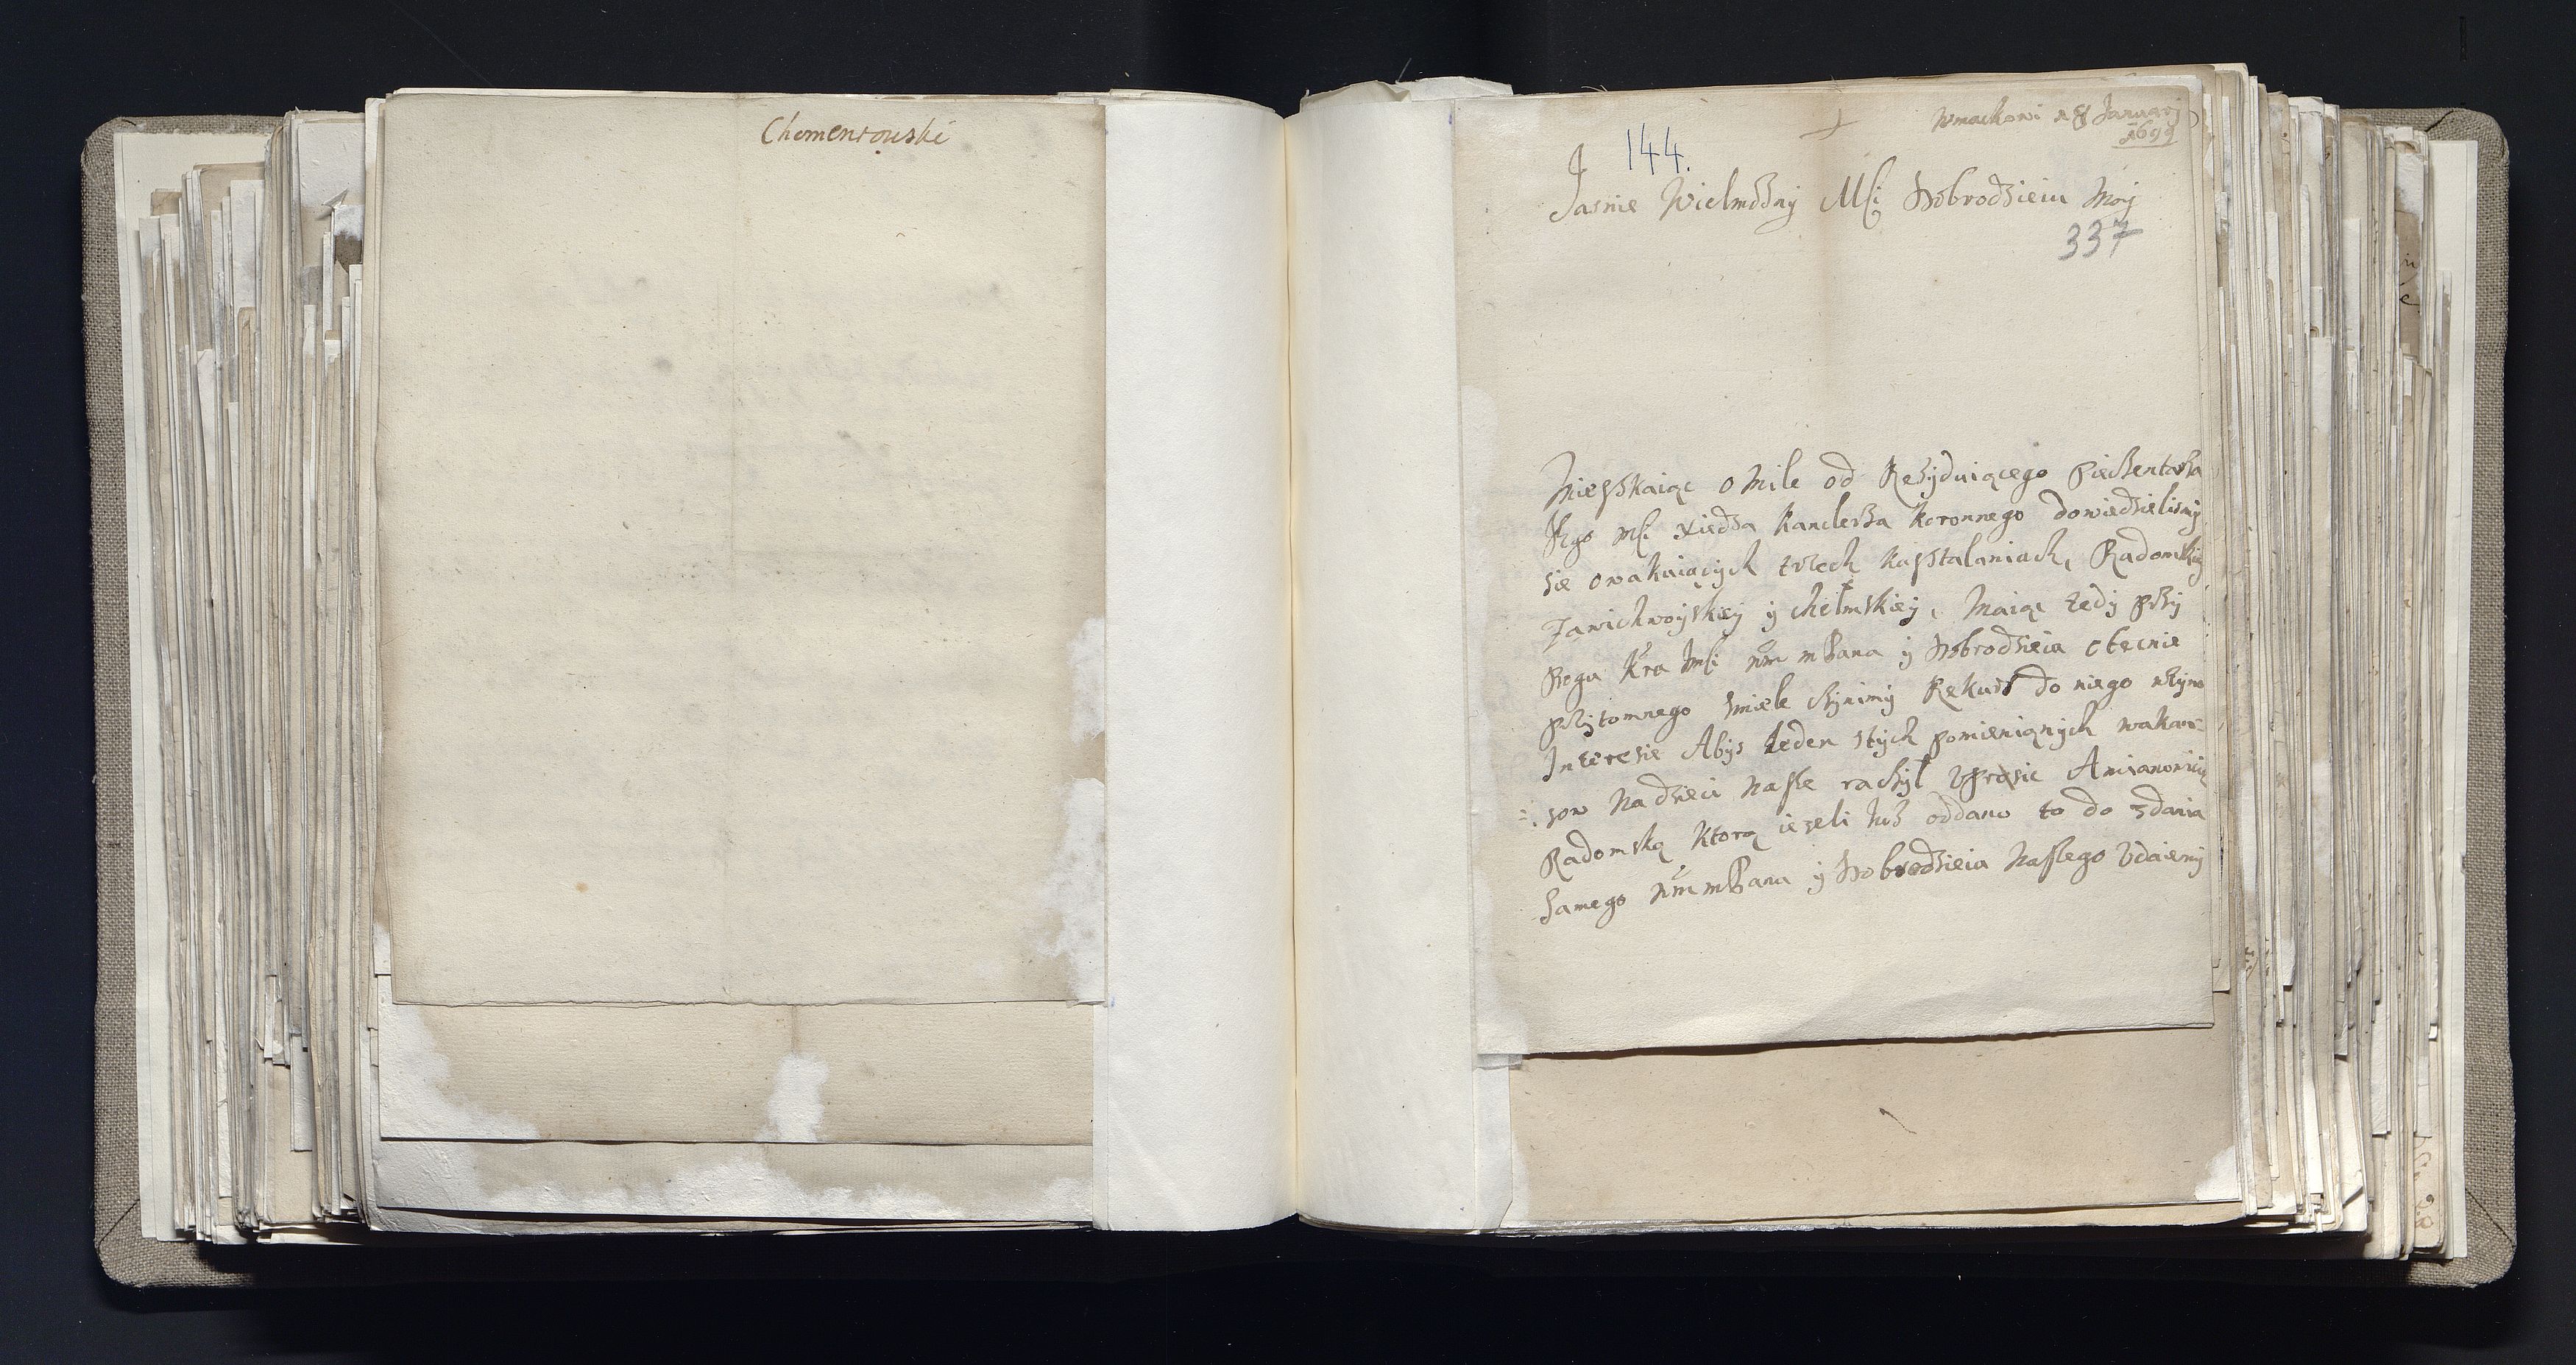 Chomentouski
144.
Wmackowi 18 Januarij
1699
Jasnie Wielmożny Mſci Dobrodzieiu Moy
337
Mieszkaiąc o Mile od Rezyduiącego
Jego Mſci Xiedza Kanclerza Koronnego dowiedzielismy
sie owakuiących trzech Kasztalaniach, Radomskiy
Zawichwoyskiey y chełmskiey, Maiąc tedy przy
Bogu Kra Jmſci wm mPana y Dobrodzieia obecnie
przytomnego smiele czynimy Rekurs do niego wtym
Interesie Abys ieden stych pomienionych wakan-
sow Nadzieci Nasze raczył Uprosic Amianowicie
Radomską Ktorą iezeli iuż oddano to do zdania
Samego wm mPana y Dobrodzieia Naszego Udaiemy